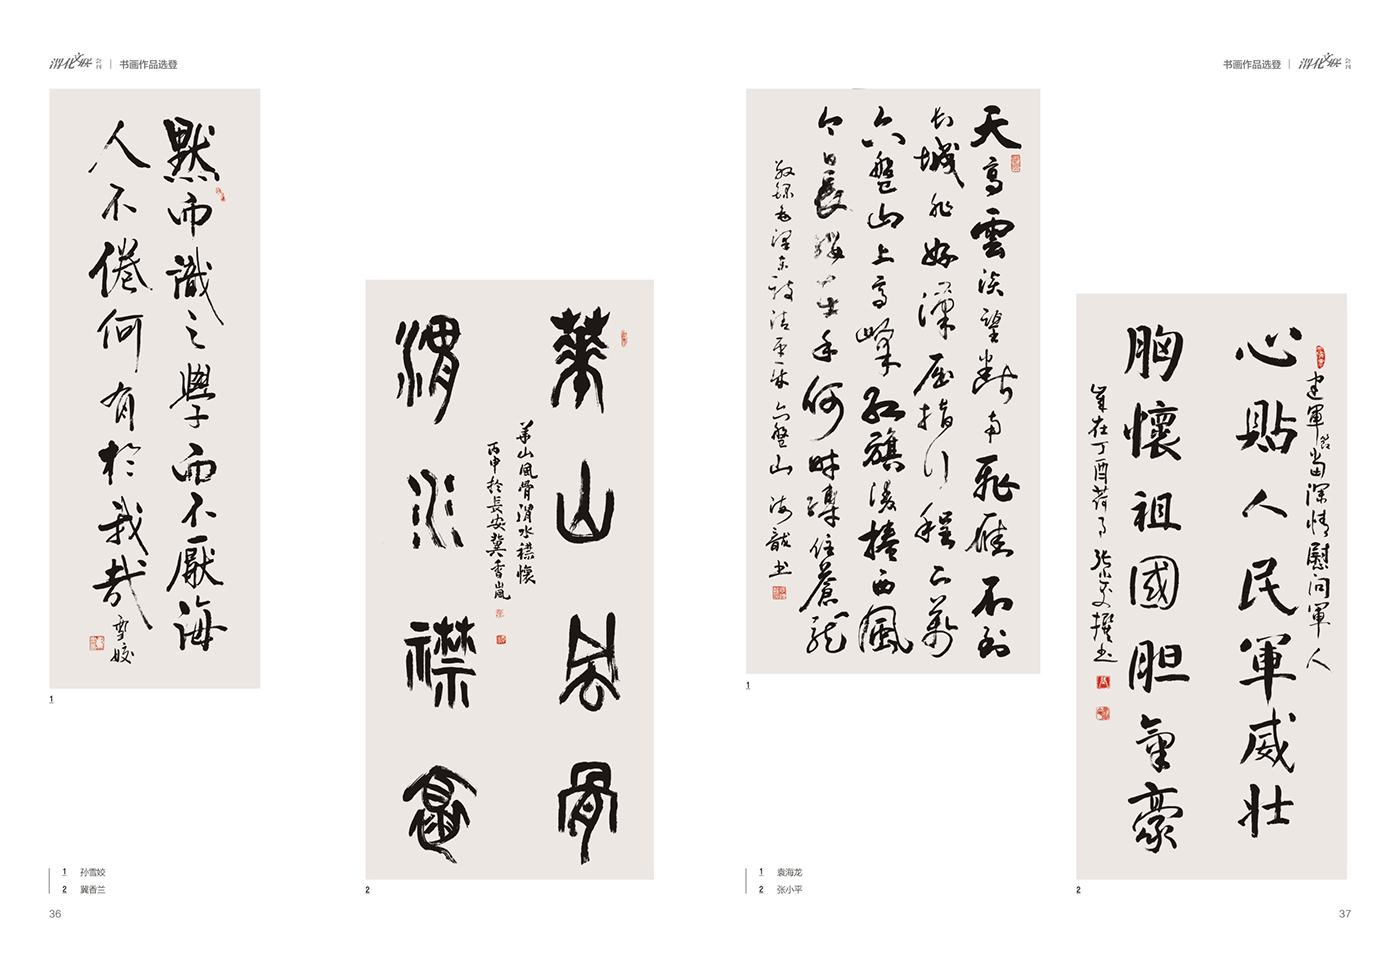 渭化文联 会刊 | 书画作品选登
默而識之學而不厭誨
人不倦何有於我哉
雪姣
1
華山風骨
渭水襟懷
華山風骨渭水襟懷
丙申於長安冀香嵐
2
1 孙雪姣
2 冀香兰
36
书画作品选登 | 渭化文联 会刊
天高雲淡望斷南飛雁不到
長城非好漢屈指行程二萬
六盤山上高峰紅旗漫捲西風
今日長纓在手何時縛住蒼龍
敬錄毛澤東詞清平樂六盤山 海龍书
1
建軍節當深情慰问軍人
心貼人民軍威壯
胸懷祖國胆氣豪
歲在丁酉荷月 張小平撰书
2
1 袁海龙
2 张小平
37